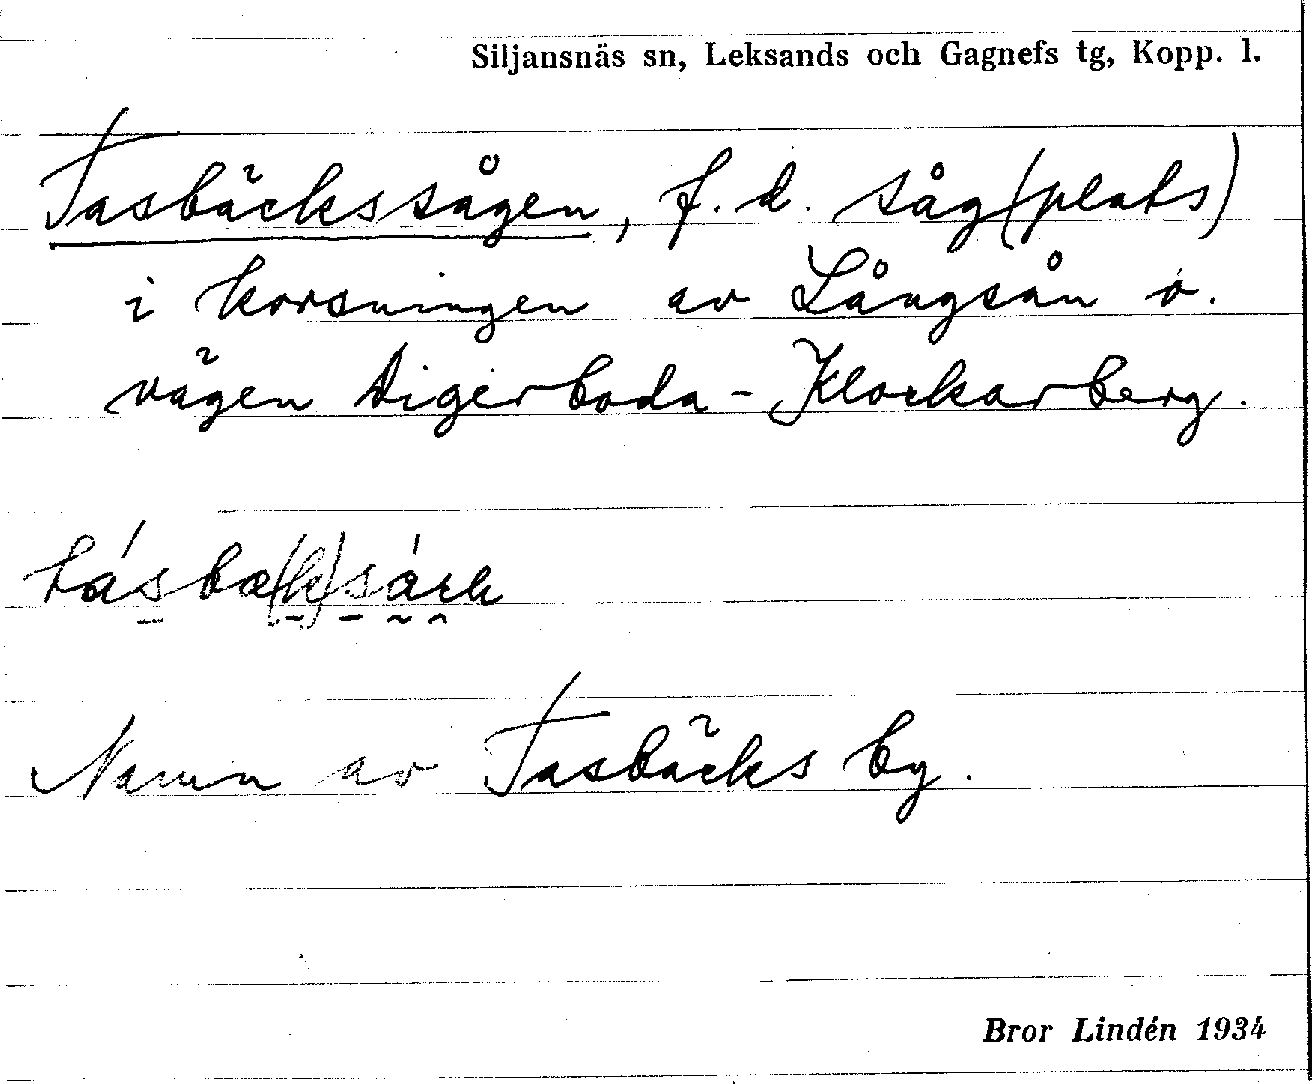 Siljansnäs sn, Leksands och Gagnefs tg, Kopp. l.
Tasbäckssågen, f. d. såg(plats)
i korsningen av Långsån o.
vägen Digerboda - Klockarberg.
Namn av Tasbäcks by.
Bror Lindén 1934